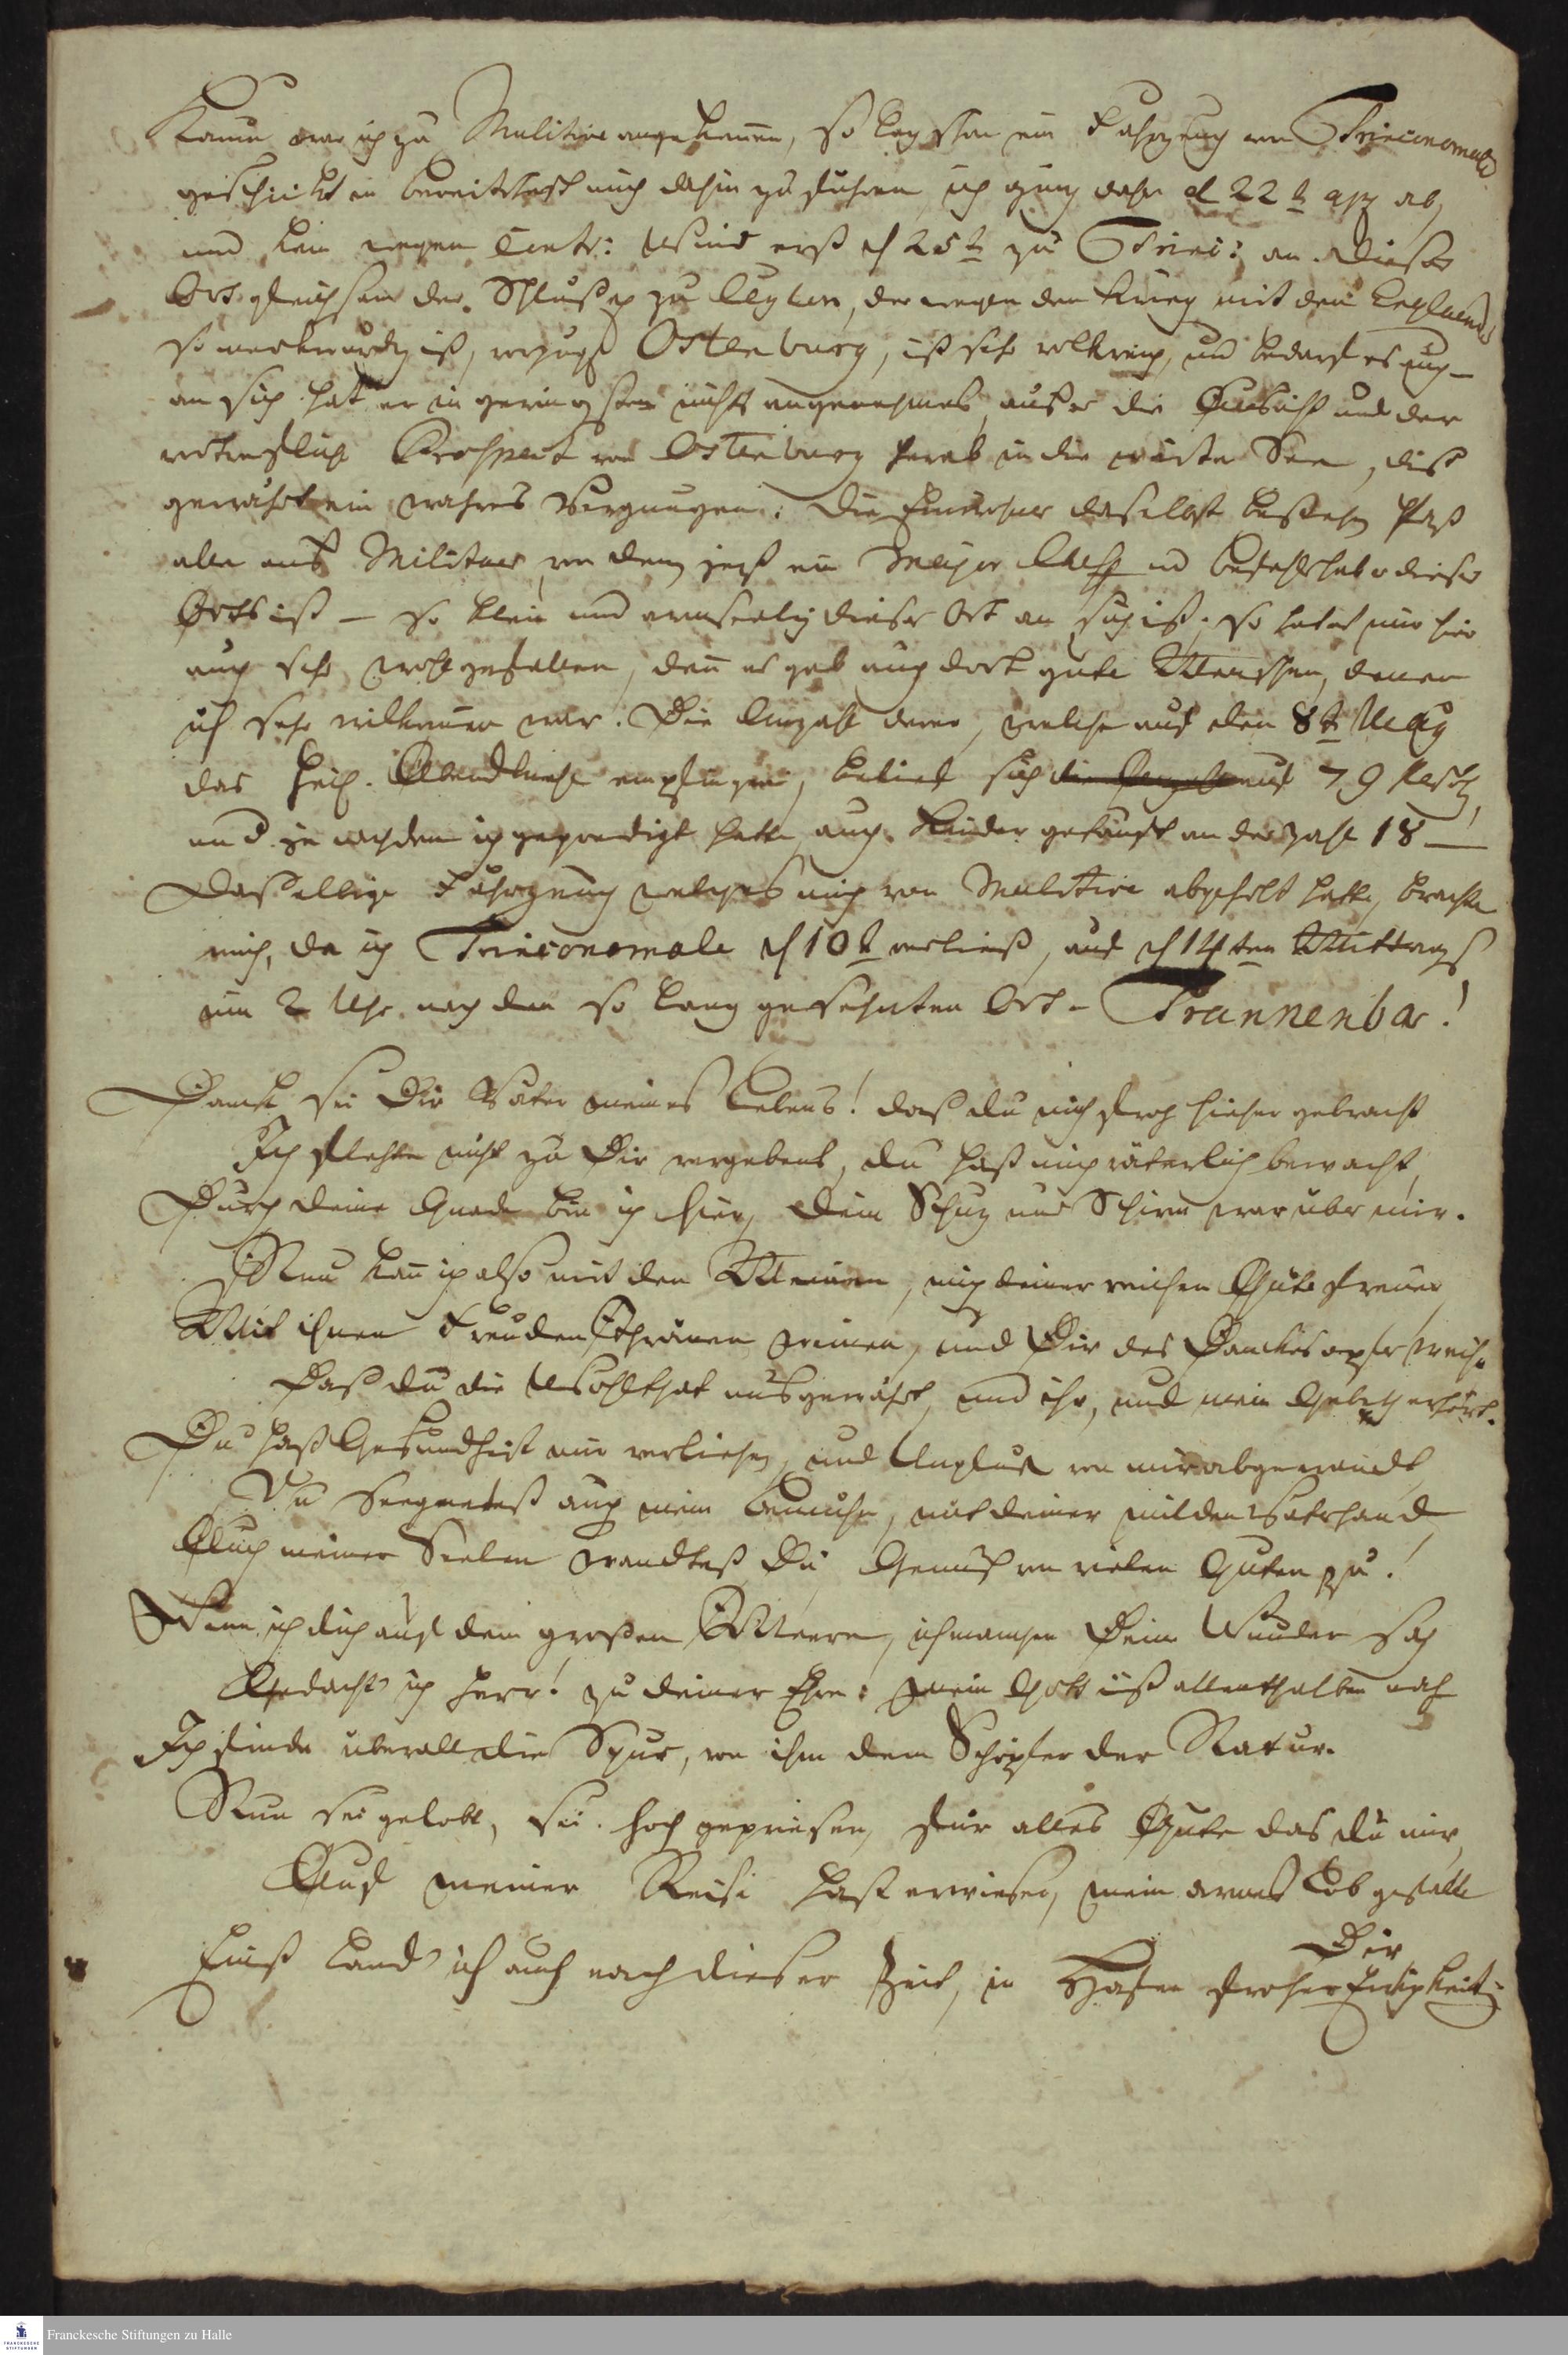 Kaum war ich zu Mulitive angekommen, so lag schon ein Fahrzeug von Trinconomale
geschickt in bereitschaft mich dahin zu führen, ich ging daher d 22t ab,
und kam wegen Contr: Wind erst d 25t zu Trinc: an. Dieser
Ort gleichsam der Schlüßel zu Ceylon, der wegen den Krieg mit den Englaendr
so merkwürdig ist, vorzügl Ostenburg, ist sehr volkreich, und bedarf es auch —
an sich hat er im geringsten nichts angenehmes, außer die Aussicht und der
vortrefliche Prospect von Ostenburg herab in die weite See, dies
gewährt ein wahres Vergnügen. Die Einwohner daselbst bestehen fast
alle aus Militaer, von dem jetzt ein Major Chef und Befehlshaber dieses
Orts ist — so klein und armseelig dieser Ort an sich ist, so hat es mir hier
auch sehr wohl gefallen, denn es gab auch dort gute Menschen, denen
ich sehr willkommen war. Die Anzahl derer, welche auf den 8t May
das heil. Abendmahl empfingen, belief sich die Anzahl auf 79
und je nachdem ich gepredigt hatte auch Kinder getauft an der Zahl 18 —
Dasselbige Fahrzeug welches mich von Mulitive abgeholt hatte, brachte
mich, da ich Trinconomale d 10t verließ, auf d 14ten Mittags
um 2 Uhr nach dem so lang gesehnten Ort - Trannenbar!
Danck sei Dir Vater meines Lebens! daß du mich froh hieher gebracht
Ich flehte nicht zu Dir vergebens, du hast mich väterlich bewacht,
Durch deine Gnade bin ich hier, dein Schuz und Schirm war über mir.
Nun kann ich also mit den Meinen, mich deiner reichen Güte freuen
Mit ihnen Freuden Thränen weinen, und Dir des Danckes opfer weihn
Daß du die Wohlthat uns gewährt, und ihr, und mein Gebeth erhört.
Du hast Gesundheit mir verliehen, und Unglück von mir abgewandt
Du Seegnetest auch mein bemühn, mit deiner milden Vaterhand
Auch meiner Seelen wandtest Du Genuß von vielen Guten zu!
Wenn ich dich auf dem großen Meere, ich manche Deine Wunder sah
Gedacht ich Herr! zu deiner Ehre: mein Gott ist allenthalben nah
Ich finde überall die Spur, von ihm dem Schöpfer der Natur.
Nun sei gelobt, sei hoch gepriesen, für alles Gute das du mir,
Auf meiner Reise hast erwiesen, mein armes Lob gefalle
Dir
Einst land' ich auch nach dieser Zeit, im Hafen froher Ewigkeit.
Franckesche Stiftungen zu Halle